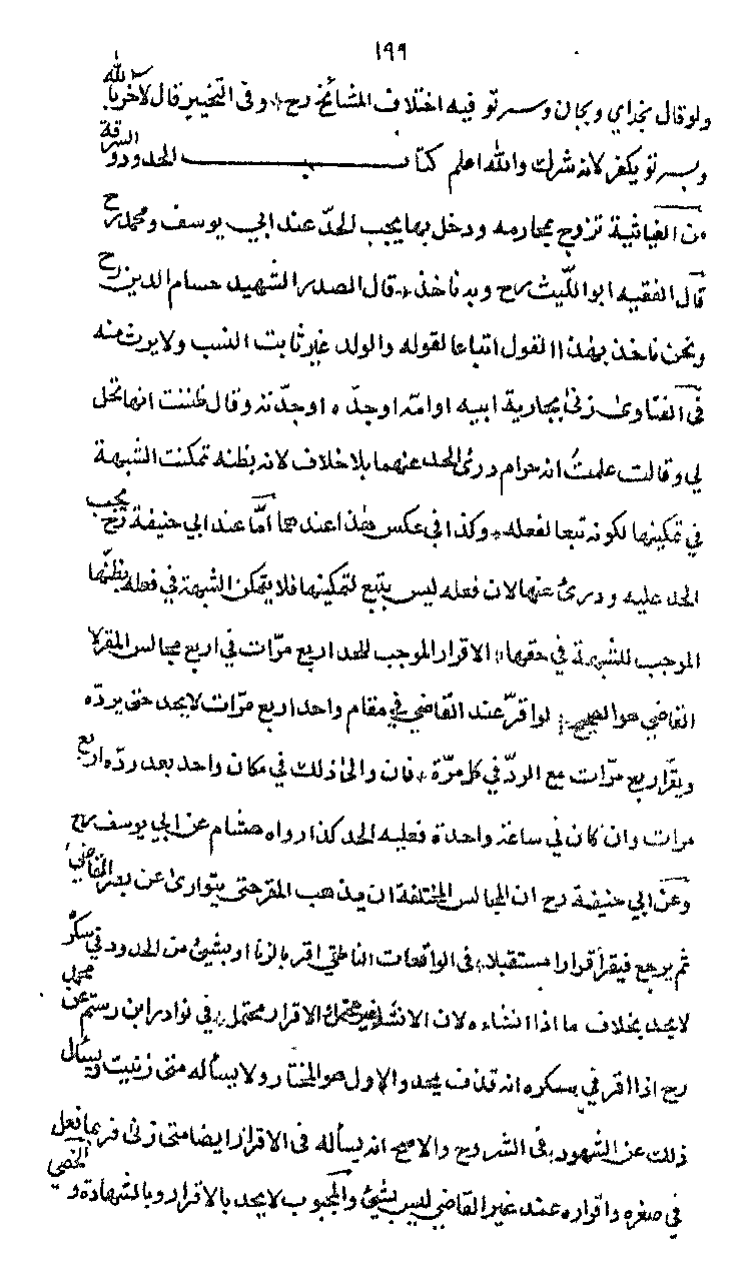 ١٩٩
ولو قال بخداي وبجان وسر تو فيه اختلاف المشائخ رح؛ وفي التخيير قال لآخر بالله
وبسر تو يكفر لانه شرك والله اعلم كتاب الحدود والسرقة
من الغياثية تزوج بمحارمه ودخل بها يجب الحدّ عند ابي يوسف ومحمد رح
قال الفقيه ابو اللّيث رح وبه ناخذ؛ قال الصدر الشهيد حسام الدين رح
ونحن ناخذ بهذا القول اتباعا لقوله والولد غير ثابت النسب ولا يرث منه
في الفتاوى زنى بجارية ابيه او امّه او جدّه او جدّته وقال ظننت انها تحل
لي وقالت علمتُ انه حرام درئ الحد عنهما بلا خلاف لانه بظنه تمكنت الشبهة
في تمكينها لكونه تبعا لفعله؛ وكذا في عكس هذا عندهما أمّا عند ابي حنيفة رح يجب
الحد عليه ودرئ عنها لان فعله ليس بتبع لتمكينها فلا يتمكن الشبهة في فعله بظنّها
الموجب للشبهة في حقها؛ الاقرار الموجب للحد اربع مرّات في اربع مجالس المقر لا
القاضي هو الصحيح؛ لو اقرّ عند القاضي في مقام واحد اربع مرّات لا يحد حتى يردّه
ويقرّ اربع مرّات مع الردّ في كل مرّة؛ فان والى ذلك في مكان واحد بعد ردّه اربع
مرات وان كان في ساعة واحدة فعليه الحد كذا رواه هشام عن ابي يوسف رح
وعن ابي حنيفة رح ان المجالس المختلفة ان يذهب المقر حتى يتوارى عن بصر القاضي
ثم يرجع فيقر اقرارا مستقبلا؛ في الواقعات الناطفي اقر بالزنا او بشيئ من الحدود في سكره
لا يحد بخلاف ما اذا انشاءه لان الانشاء غير محتمل الاقرار محتمل؛ في نوادر ابن رستم عن محمد
رح اذا اقر في سكره انه قذف يحد والاول هو المختار ولا يسأله متى زنيت ويسأل
ذلك عن الشهود؛ في الشروح والاصح انه يسأله في الاقرار ايضا متى زنى فربما فعل
في صغره واقراره عند غير القاضي ليس بشيئ والمجبوب لا يحد بالاقرار وبالشهادة و الخصي